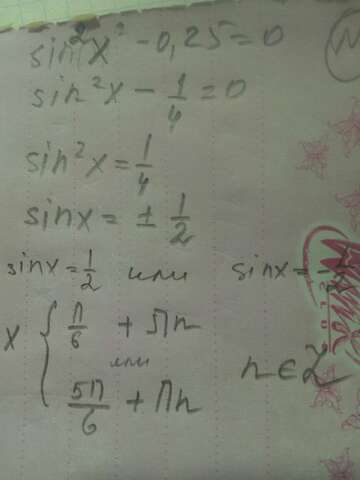 sin²x² - 0,25 = 0
sin²x - 1/4 = 0
sin²x = 1/4
sinx = ± 1/2
sinx = 1/2 или sinx = -1/2
x { π/6 + πn
или
5π/6 + πn
n ∈ Z